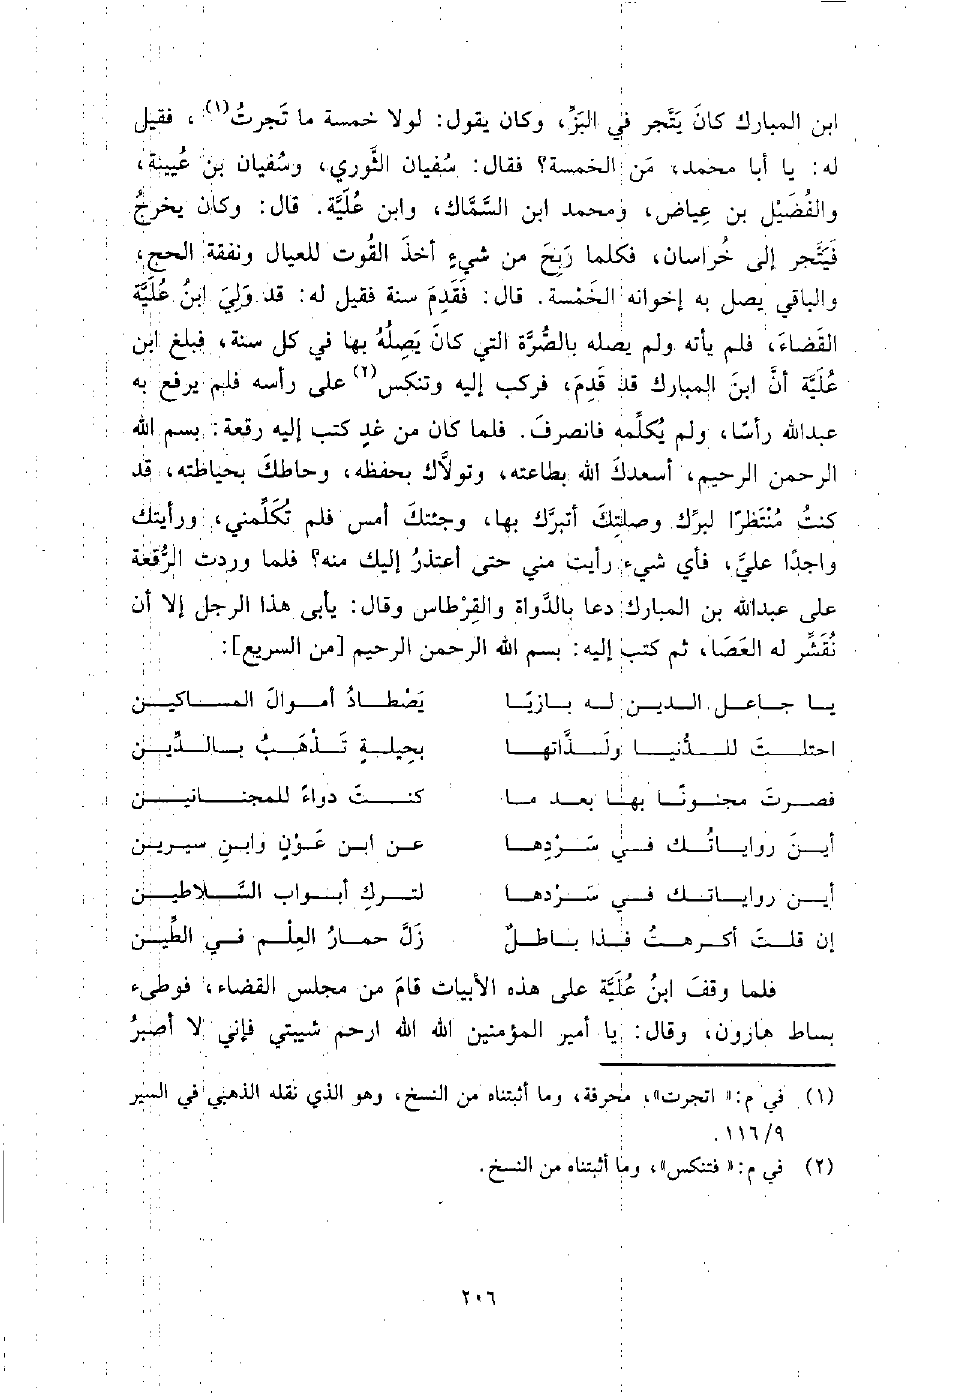 ابن المبارك كانَ يَتَّجر في البَزِّ، وكان يقول: لولا خمسة ما تَجرتُ(١)، فقيل
له: يا أبا محمد، مَن الخمسة؟ فقال: سُفيان الثَّوري، وسُفيان بن عُيينة،
والفُضَيْل بن عِياض، ومحمد ابن السَّمَّاك، وابن عُلَيَّة. قال: وكان يخرجُ
فَيَتَّجر إلى خُراسان، فكلما رَبِحَ من شيءٍ أخذَ القُوت للعيال ونفقة الحج،
والباقي يصل به إخوانه الخَمْسة. قال: فَقَدِمَ سنة فقيل له: قد وَلِيَ ابنُ عُلَيَّة
القَضاءَ، فلم يأته ولم يصله بالصُّرة التي كانَ يَصِلُهُ بها في كل سنة، فبلغ ابن
عُلَيَّة أنَّ ابنَ المبارك قد قَدِمَ، فركب إليه وتنكس(٢) على رأسه فلم يرفع به
عبدالله رأسًا، ولم يُكلِّمه فانصرفَ. فلما كان من غدٍ كتب إليه رقعة: بسم الله
الرحمن الرحيم، أسعدكَ الله بطاعته، وتولَّاك بحفظه، وحاطكَ بحياطته، قد
كنتُ مُنْتَظرًا لبرِّك وصلتِكَ أتبرَّك بها، وجئتكَ أمس فلم تُكَلِّمني، ورأيتك
واجدًا عليَّ، فأي شيء رأيت مني حتى أعتذرُ إليك منه؟ فلما وردت الرُّقعة
على عبدالله بن المبارك دعا بالدَّواة والقِرْطاس وقال: يأبى هذا الرجل إلا أن
نُقَشِّر له العَصَا، ثم كتب إليه: بسم الله الرحمن الرحيم [من السريع]:
يا جاعل الدين له بازيًا يَصْطادُ أموالَ المساكين
احتلتَ للدُّنيا ولَذَّاتها بحيلةٍ تَذْهَبُ بالدِّين
فصرتَ مجنونًا بها بعد ما كنتَ دواءً للمجانين
أينَ رواياتُك في سَرْدِها عن ابن عَوْنٍ وابنِ سيرين
أين رواياتك في سَرْدها لتركِ أبواب السَّلاطين
إن قلتَ أكرهتُ فذا باطلٌ زَلَّ حمارُ العِلْم في الطِّين
فلما وقفَ ابنُ عُلَيَّة على هذه الأبيات قامَ من مجلس القضاء، فوطىء
بساط هارون، وقال: يا أمير المؤمنين الله الله ارحم شيبتي فإني لا أصبرُ
(١) في م: « اتجرت»، محرفة، وما أثبتناه من النسخ، وهو الذي نقله الذهبي في السير
٩/ ١١٦.
(٢) في م: « فتنكس»، وما أثبتناه من النسخ.
٢٠٦